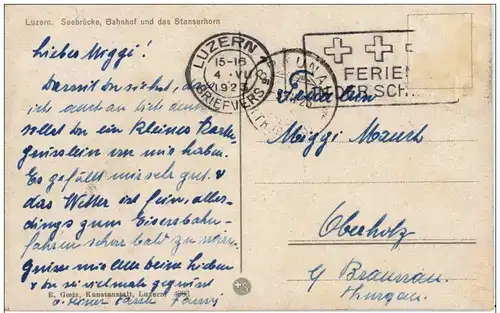 Luzern. Seebrücke, Bahnhof und das Stanserhorn
Liebes Miggi!
Damit du siehst, dass
ich auch an dich denke
sollst du ein kleines Karten-
grüsslein von mir haben.
Es gefällt mir sehr gut. &
das Wetter ist fein, aller-
dings zum Eisenbahn-
fahren schon bald zu warm.
Grüsse mir alle deine Lieben
& du sei vielmals gegrüsst
E. Goetz, Kunstanstalt, Luzern
LUZERN 1
15-16
4. VII
1923
BRIEFVERS.
FERIEN
IN DER SCH
Miggi Mauch
Oberholz
b/ Braunau
Thurgau.